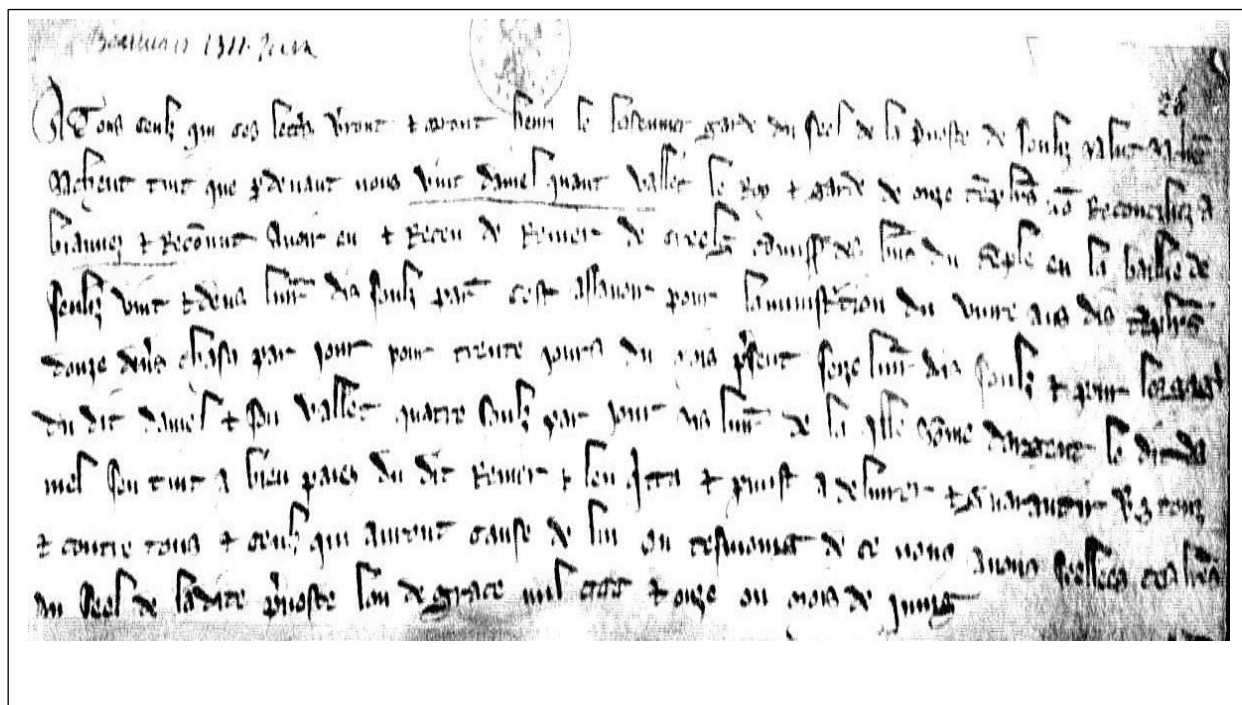 Beauvais 1311. Juin
26
A Tous ceulz qui ces lettres verront et orront henri le garde du seel de la prevoste de senliz salut
sachent tuit que par devant nous vint daniel quant vallet le Roy et garde de onze templiers non Reconciliez a
biauvez et Reconnut avoir eu et Receu de Renier de creelz commiss des biens du temple en la baillie de
senliz vint et deus livres dis soulz par cest assavoir pour laministration du vivre aus dis templiers
douze deniers chascun par jour pour trente jours du mois present seze livres dis soulz et pour les gages
du dit daniel et son vallet quatre soulz par jour vis livres de la quelle somme dargent le dit da
niel sen tint a bien paies du dit Renier et len quitta et promist a delivrer et garantir vers touz
et contre tous et ceulz qui auront cause de lui en tesmoing de ce nous avons seellees ces lettres
du seel de ladite prevoste lan de grace mil ccc et onze ou mois de juing